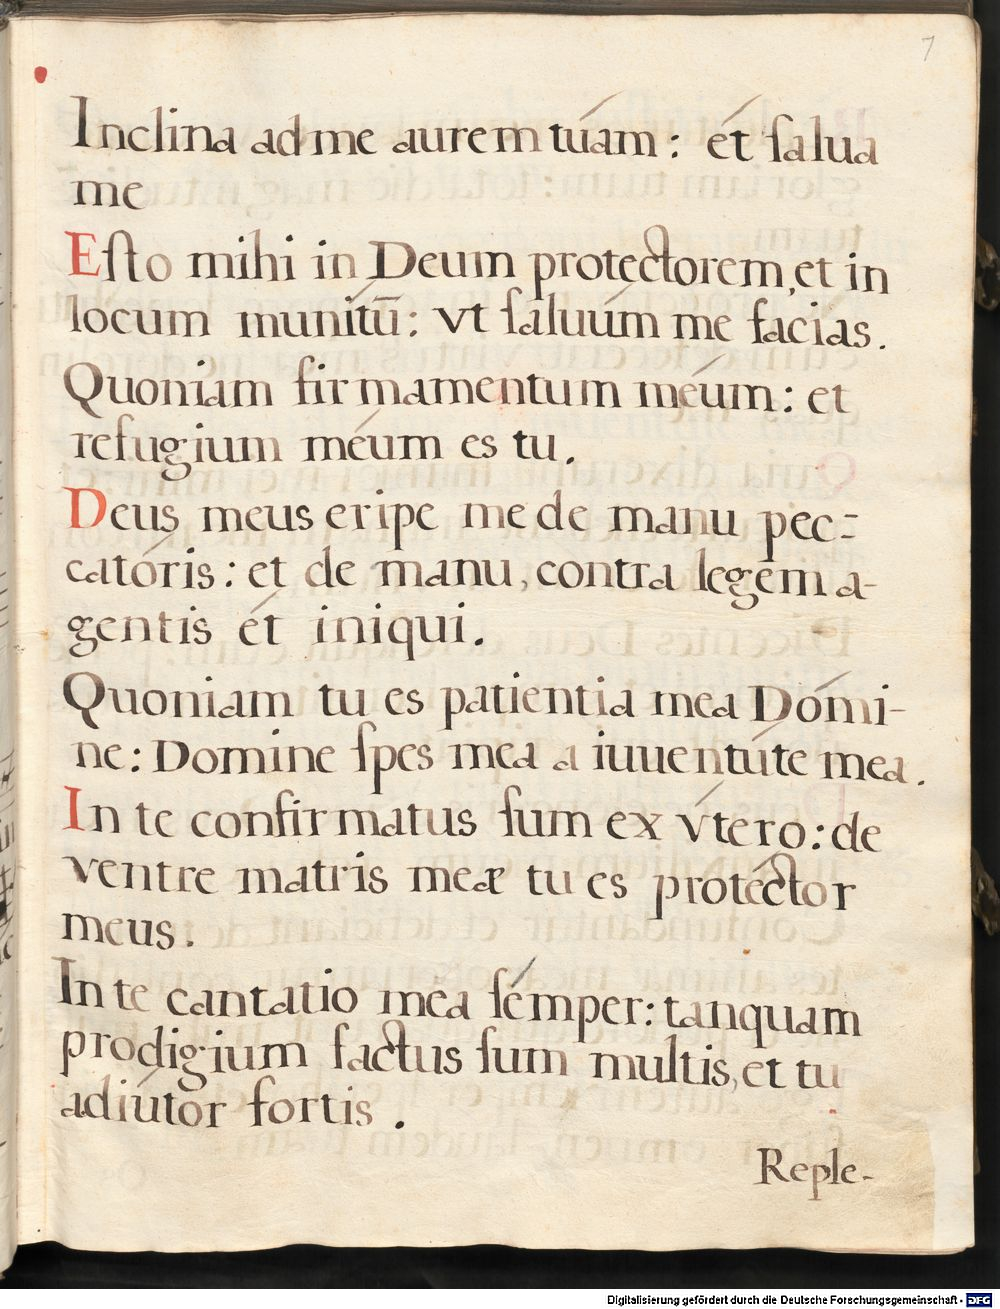 7
Inclina ad me aurem túam: ét ſalua
me
Eſto mihi in Deum protectorem, et in
locum munítū: vt ſaluúm me facias.
Quoniam firmamentum méum: et
refugium méum es tu.
Deus meus eripe me de manu pec=
catóris: et de manu, contra legem a-
gentis ét iniqui.
Quoniam tu es patientia mea Dómi-
ne: Domine ſpes mea a iuuentúte mea.
In te confirmatus ſum ex vtero: de
ventre matris meæ tu es protéctor
meus.
In te cantatio mea ſémper: tanquam
prodigium factus ſum multis, et tu
adiútor fortis.
Reple-
Digitalisierung gefördert durch die Deutsche Forschungsgemeinschaft - DFG